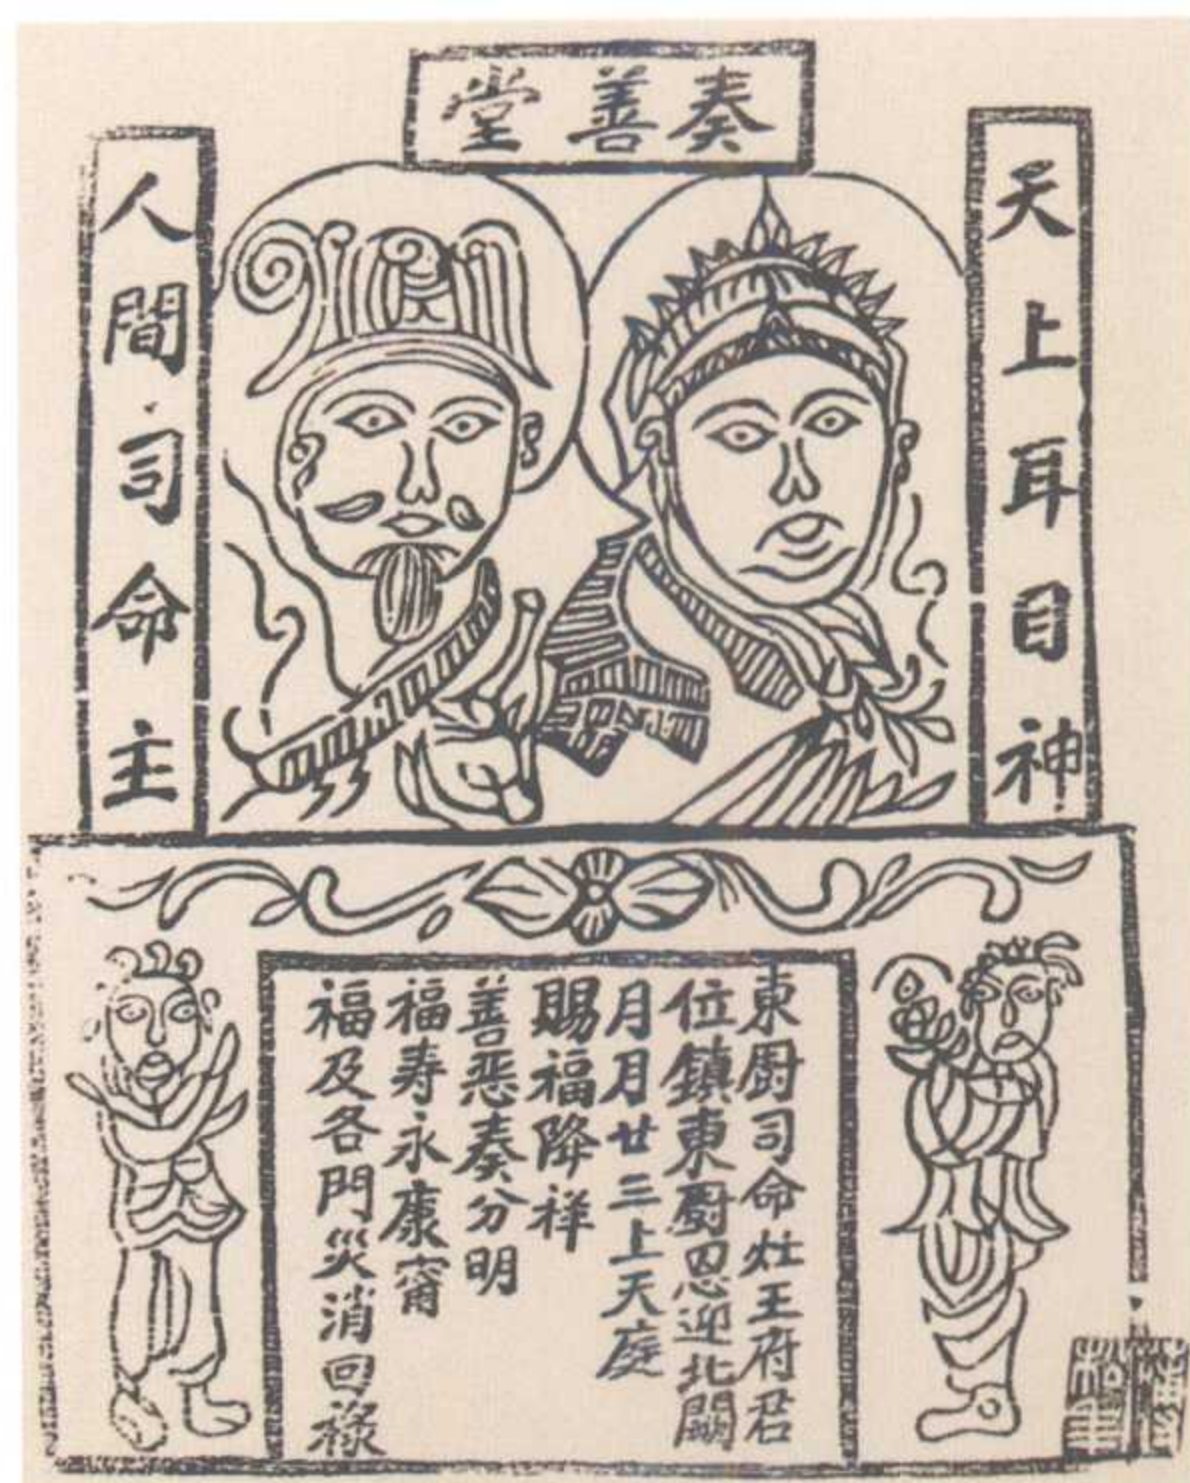 奏善堂
天上耳目神
人間司命主
東廚司命灶王府君
位鎮東廚恩迎北闕
月月廿三上天庭
賜福降祥
善惡奏分明
福寿永康甯
福及各門災消回祿